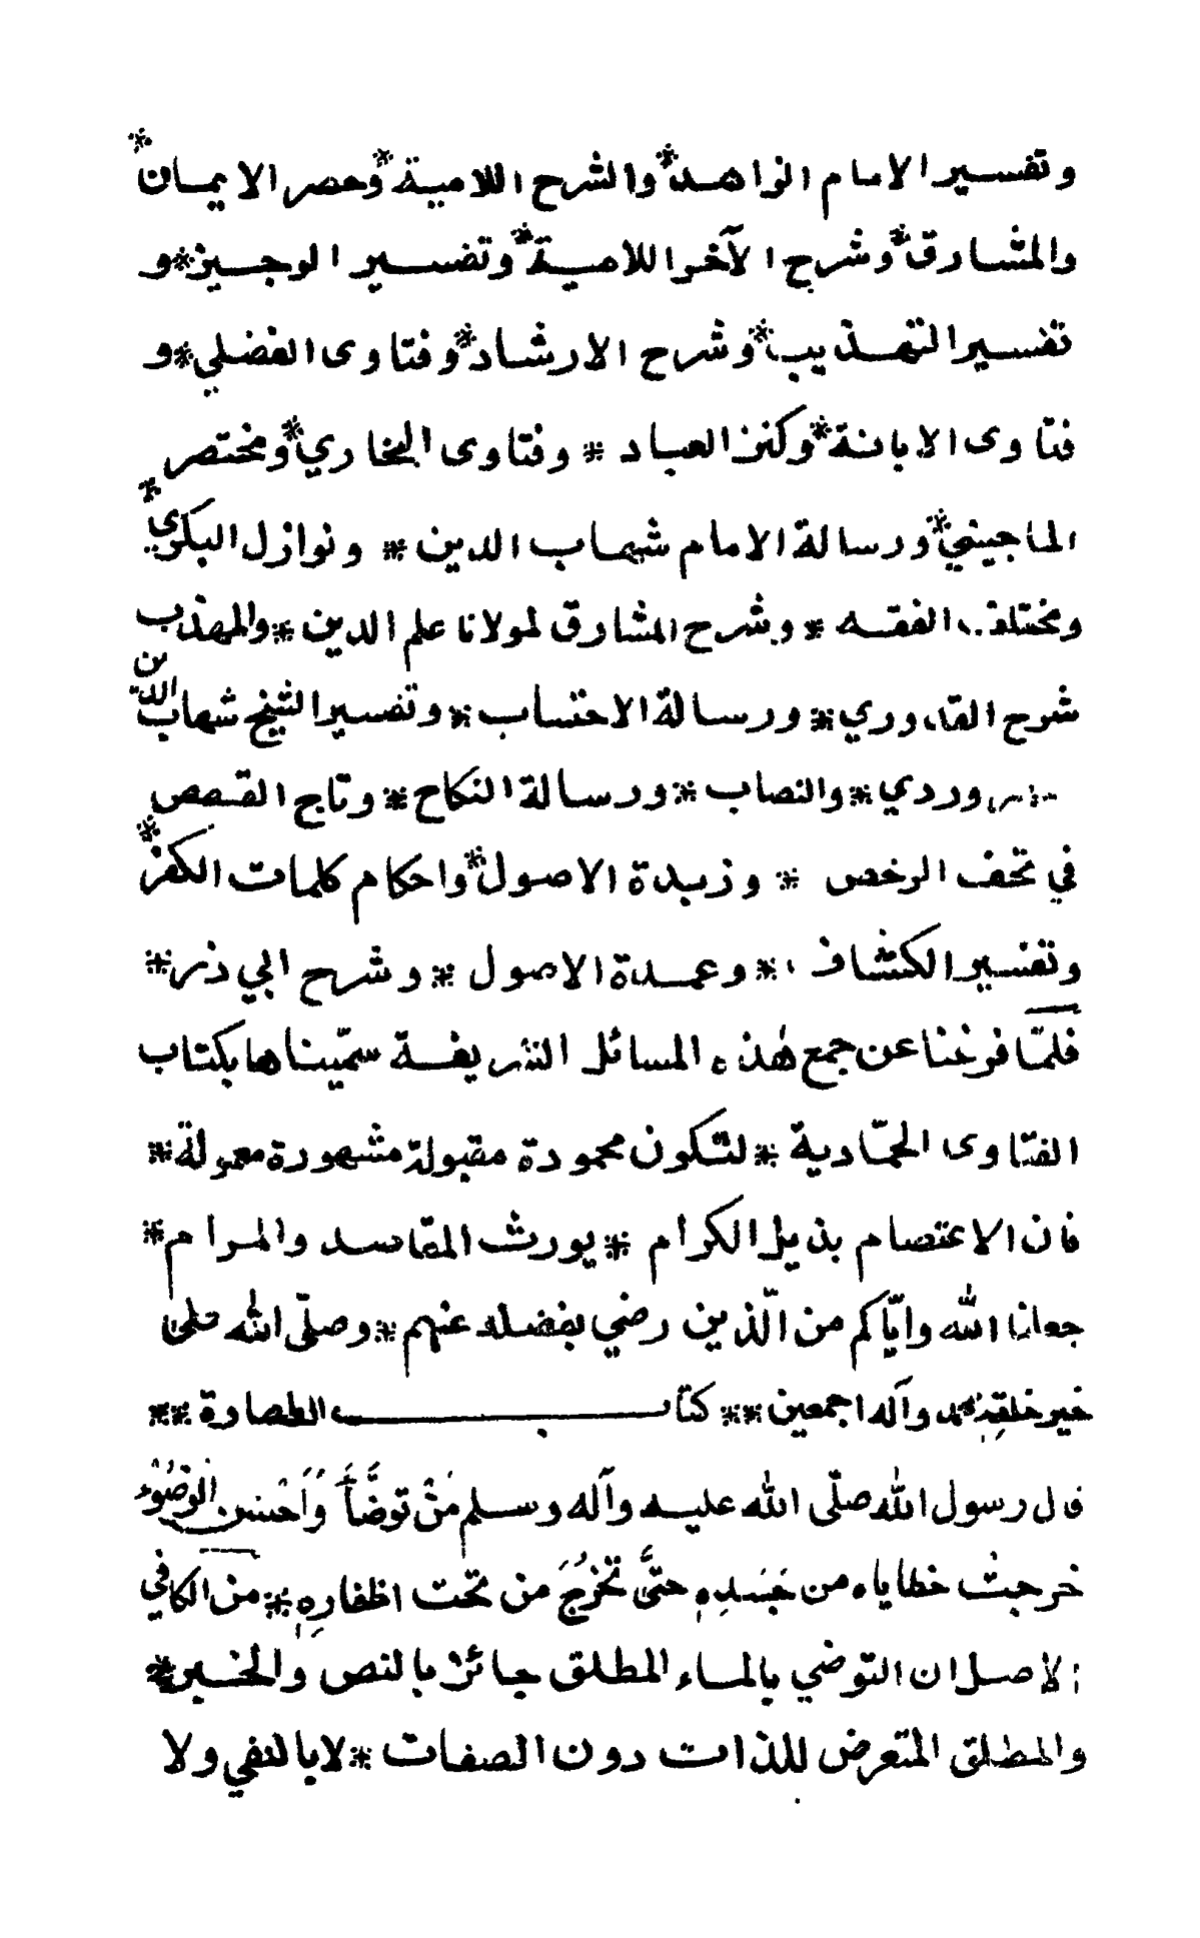 وتفسير الامام الزاهد * والشرح اللامية * وحصر الايمان *
والمشارق * وشرح الآخر اللامية * وتفسير الوجيز * و
تفسير التهذيب * وشرح الارشاد * وفتاوى الفضلي * و
فتاوى الابانة * وكنز العباد * وفتاوى البخاري * ومختصر
الماجيني * ورسالة الامام شهاب الدين * ونوازل البكري *
ومختلف الفقه * وشرح المشارق لمولانا علم الدين * والمهذب
شرح القدوري * ورسالة الاحتساب * وتفسير الشيخ شهاب الدين
وردي * والنصاب * ورسالة النكاح * وتاج القصص
في تحف الرخص * وزبدة الاصول * واحكام كلمات الكفر *
وتفسير الكشاف * وعمدة الاصول * وشرح ابي ذر *
فلمّا فرغنا عن جمع هٰذه المسائل الشريفة سمّيناها بكتاب
الفتاوى الحمّادية * لتكون محمودة مقبولة مشهورة معمولة *
فان الاعتصام بذيل الكرام * يورث المقاصد والمرام *
جعلنا الله وايّاكم من الّذين رضي بفضله عنهم * وصلّى الله على
خير خلقه محمد وآله اجمعين ** كتاب الطهارة **
قال رسول الله صلّى الله عليه وآله وسلم مَنْ توضَّأَ وَاَحْسَن الوُضُوْء
خرجت خطاياه من جَسَدِهٖ حتىَّ تخْرُجَ من تحت اظفارِهٖ * من الكافي
الاصل ان التوضي بالماء المطلق جائز بالنص والخبر *
والمطلق المتعرض للذات دون الصفات * لا بالنفي ولا